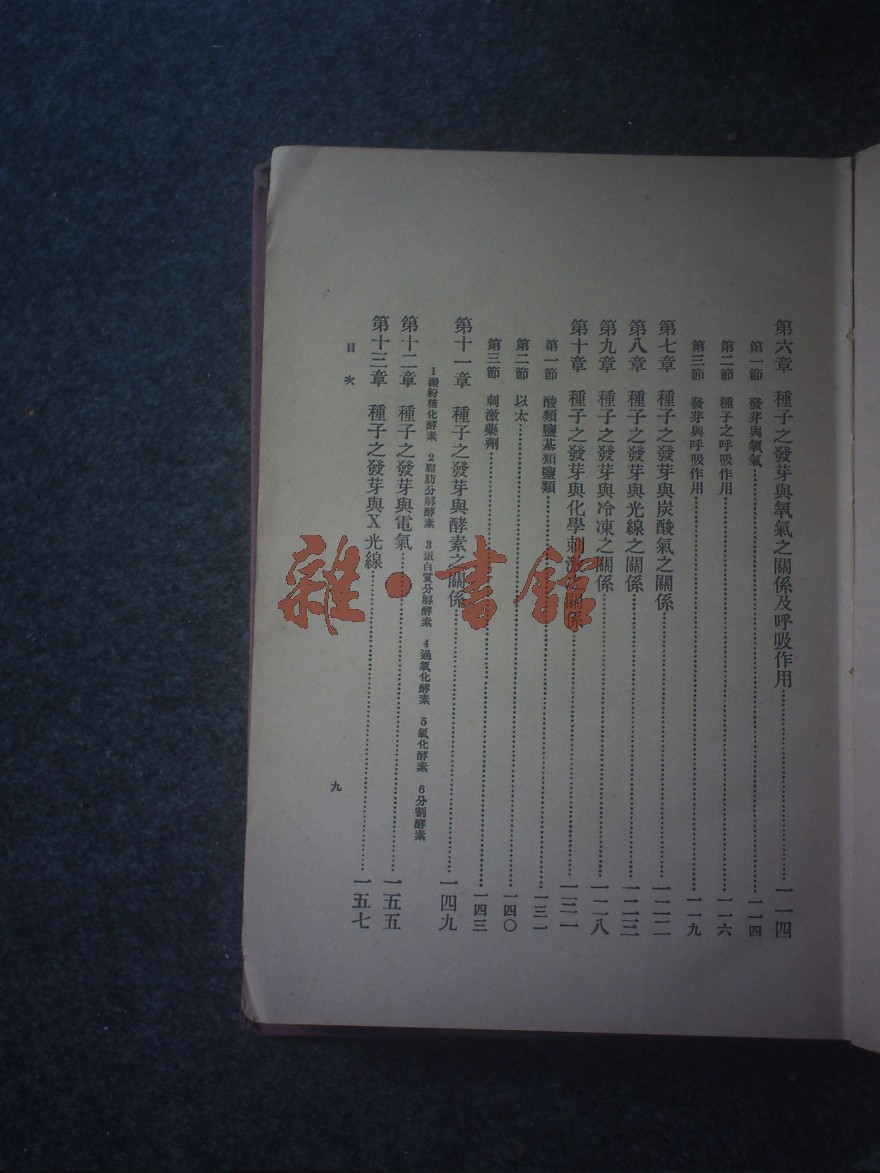 第六章 種子之發芽與氧氣之關係及呼吸作用……一一四
第一節 發芽與氧氣……一一四
第二節 種子之呼吸作用……一一六
第三節 發芽與呼吸作用……一一九
第七章 種子之發芽與炭酸氣之關係……一二二
第八章 種子之發芽與光線之關係……一二三
第九章 種子之發芽與冷凍之關係……一二八
第十章 種子之發芽與化學刺激之關係……一三一
第一節 酸類鹽基類鹽類……一三一
第二節 以太……一四〇
第三節 刺激藥劑……一四三
第十一章 種子之發芽與酵素之關係……一四九
1澱粉糖化酵素 2脂肪分解酵素 3蛋白質分解酵素 4過氧化酵素 5氧化酵素 6分割酵素
第十二章 種子之發芽與電氣……一五五
第十三章 種子之發芽與X光線……一五七
目次 九
雜·書館